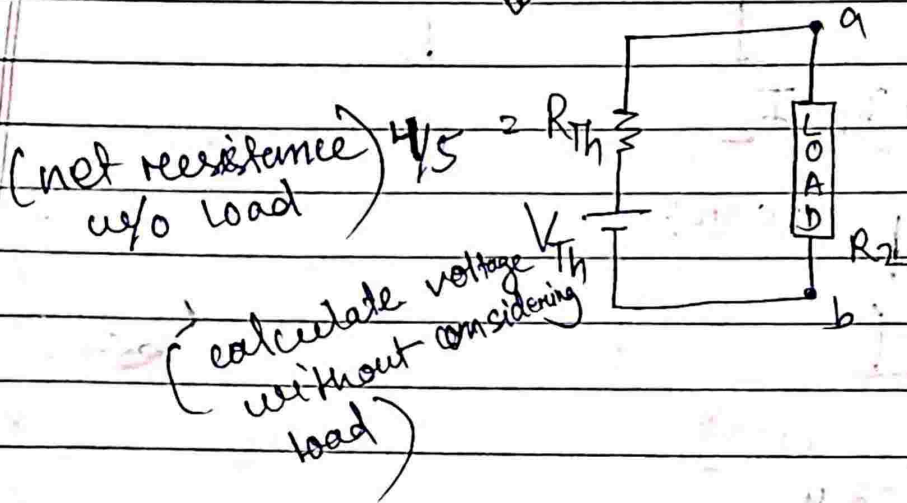 a
(net reesistance
w/o load) 4/5 = R_Th
LOAD
V_Th
R_2L
b
(calculate voltage
without considering
load)